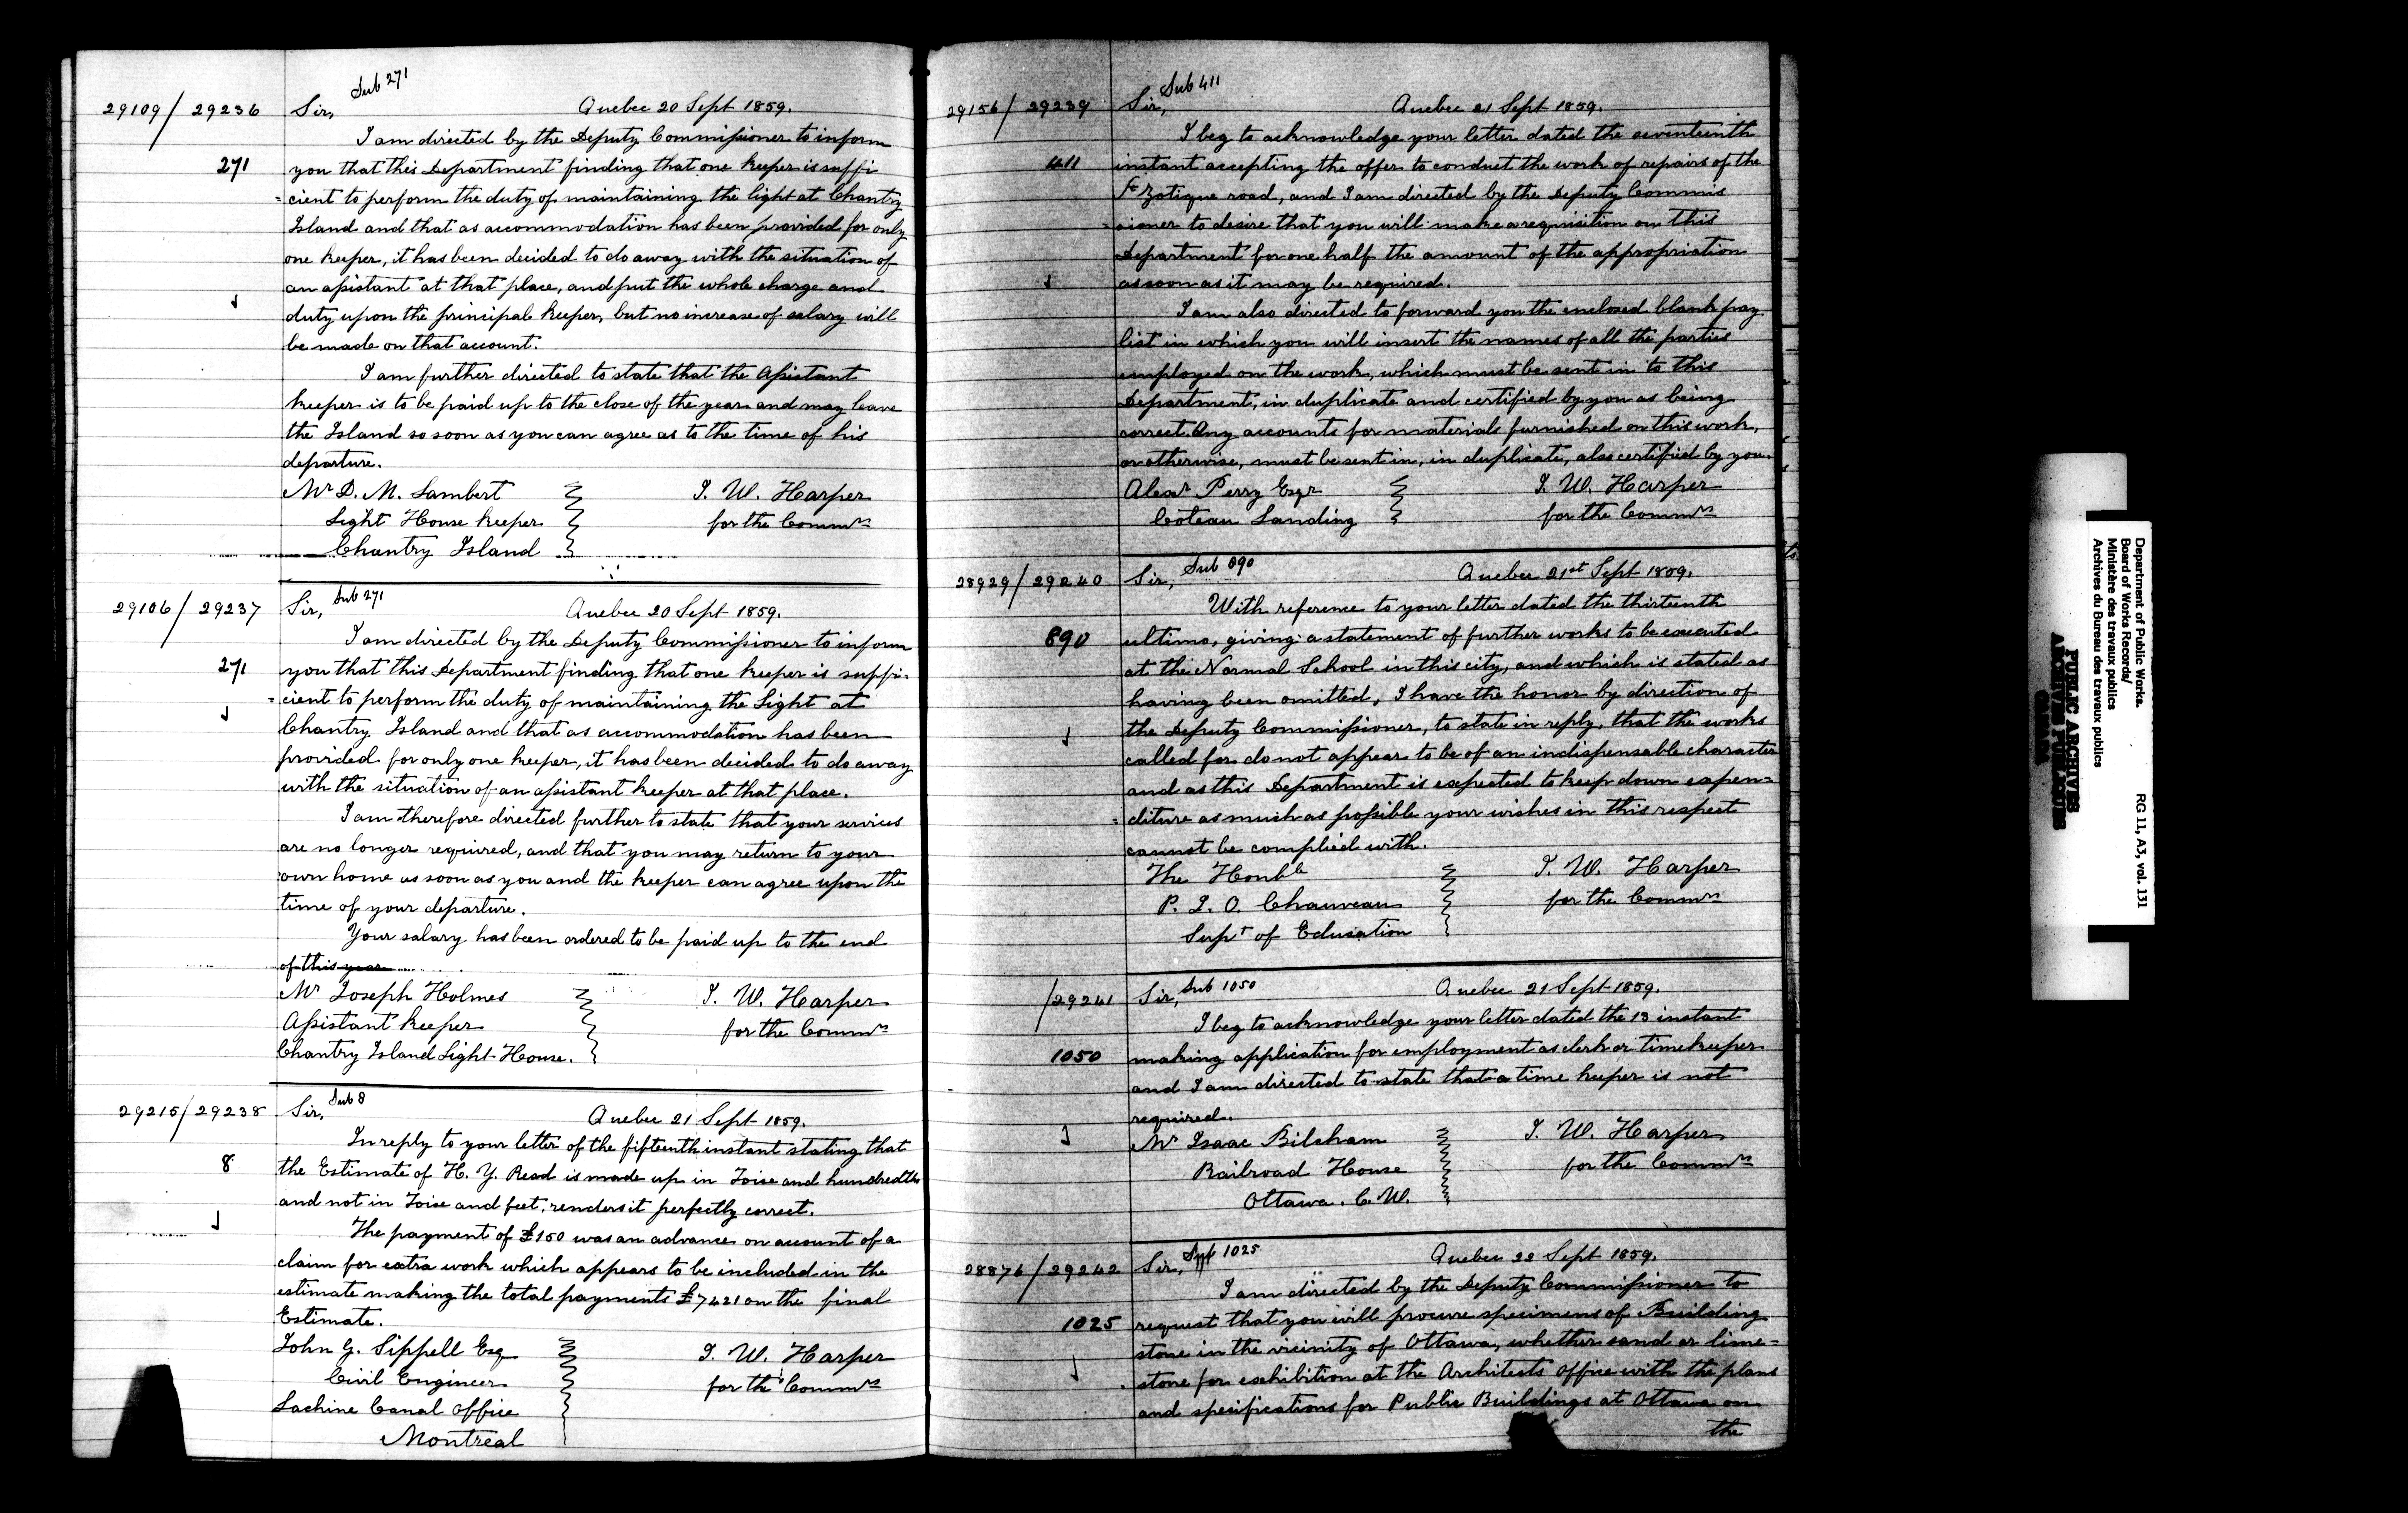 29109 / 29236 Sir, Sub 271 Quebec 20 Sept 1859.
I am directed by the Deputy Commissioner to inform
271 you that this Department finding that one keeper is suffi
=cient to perform the duty of maintaining the light at Chantry
Island and that as accommodation has been provided for only
one keeper, it has been decided to do away with the situation of
an assistant at that place, and put the whole charge and
duty upon the principal keeper, but no increase of salary will
be made on that account.
I am further directed to state that the Assistant
keeper is to be paid up to the close of the year and may leave
the Island so soon as you can agree as to the time of his
departure.
Mr D. M. Lambert J. W. Harper
Light House keeper for the Commrs
Chantry Island
29106 / 29237 Sir, Sub 271 Quebec 20 Sept 1859.
I am directed by the Deputy Commissioner to inform
271 you that this Department finding that one keeper is suffi-
=cient to perform the duty of maintaining the Light at
Chantry Island and that as accommodation has been
provided for only one keeper, it has been decided to do away
with the situation of an assistant keeper at that place.
I am therefore directed further to state that your services
are no longer required, and that you may return to your
own home as soon as you and the keeper can agree upon the
time of your departure.
Your salary has been ordered to be paid up to the end
of this year
Mr Joseph Holmes J. W. Harper
Assistant keeper for the Commrs
Chantry Island Light-House.
29215 / 29238 Sir, Sub 8 Quebec 21 Sept 1859.
In reply to your letter of the fifteenth instant stating that
8 the Estimate of H. Y. Read is made up in Toise and hundredths
and not in Toise and feet, renders it perfectly correct.
The payment of £150 was an advance on account of a
claim for extra work which appears to be included in the
estimate making the total payments £7421 on the final
Estimate.
John G. Sippell Esq J. W. Harper
Civil Engineer for the Commrs
Lachine Canal Office
Montreal
29156 / 29239 Sir, Sub 411 Quebec 21 Sept 1859.
I beg to acknowledge your letter dated the seventeenth
411 instant accepting the offer to conduct the work of repairs of the
St Zotique road, and I am directed by the Deputy Commis
=sioner to desire that you will make a requisition on this
Department for one half the amount of the appropriation
as soon as it may be required.
I am also directed to forward you the enclosed blank pay
list in which you will insert the names of all the parties
employed on the work, which must be sent in to this
Department, in duplicate and certified by you as being
correct. Any accounts for materials furnished on this work,
or otherwise, must be sent in, in duplicate, also certified by you.
Alexr Perry Esqr J. W. Harper
Coteau Landing for the Commrs
28929 / 29240 Sir, Sub 890 Quebec 21st Sept 1859.
With reference to your letter dated the thirteenth
890 ultimo, giving a statement of further works to be executed
at the Normal School in this city, and which is stated as
having been omitted, I have the honor by direction of
the Deputy Commissioner, to state in reply, that the works
called for do not appear to be of an indispensable character
and as this Department is expected to keep down expen=
=diture as much as possible your wishes in this respect
cannot be complied with.
The Honble J. W. Harper
P. J. O. Chauveau for the Commrs
Supt of Education
/29241 Sir, Sub 1050 Quebec 21 Sept 1859.
I beg to acknowledge your letter dated the 13 instant
1050 making application for employment as clerk or timekeeper
and I am directed to state that a time keeper is not
required.
Mr Isaac Bilcham J. W. Harper
Railroad House for the Commrs
Ottawa. C. W.
28876 / 29242 Sir, Sub 1025 Quebec 22 Sept 1859.
I am directed by the Deputy Commissioner to
1025 request that you will procure specimens of Building
stone in the vicinity of Ottawa, whether sand or lime=
stone for exhibition at the Architects Office with the plans
and specifications for Public Buildings at Ottawa on
the
Department of Public Works.
Board of Works Records/
Ministère des travaux publics
Archives du Bureau des travaux publics
RG 11, A3, vol. 131
PUBLIC ARCHIVES
ARCHIVES PUBLIQUES
CANADA